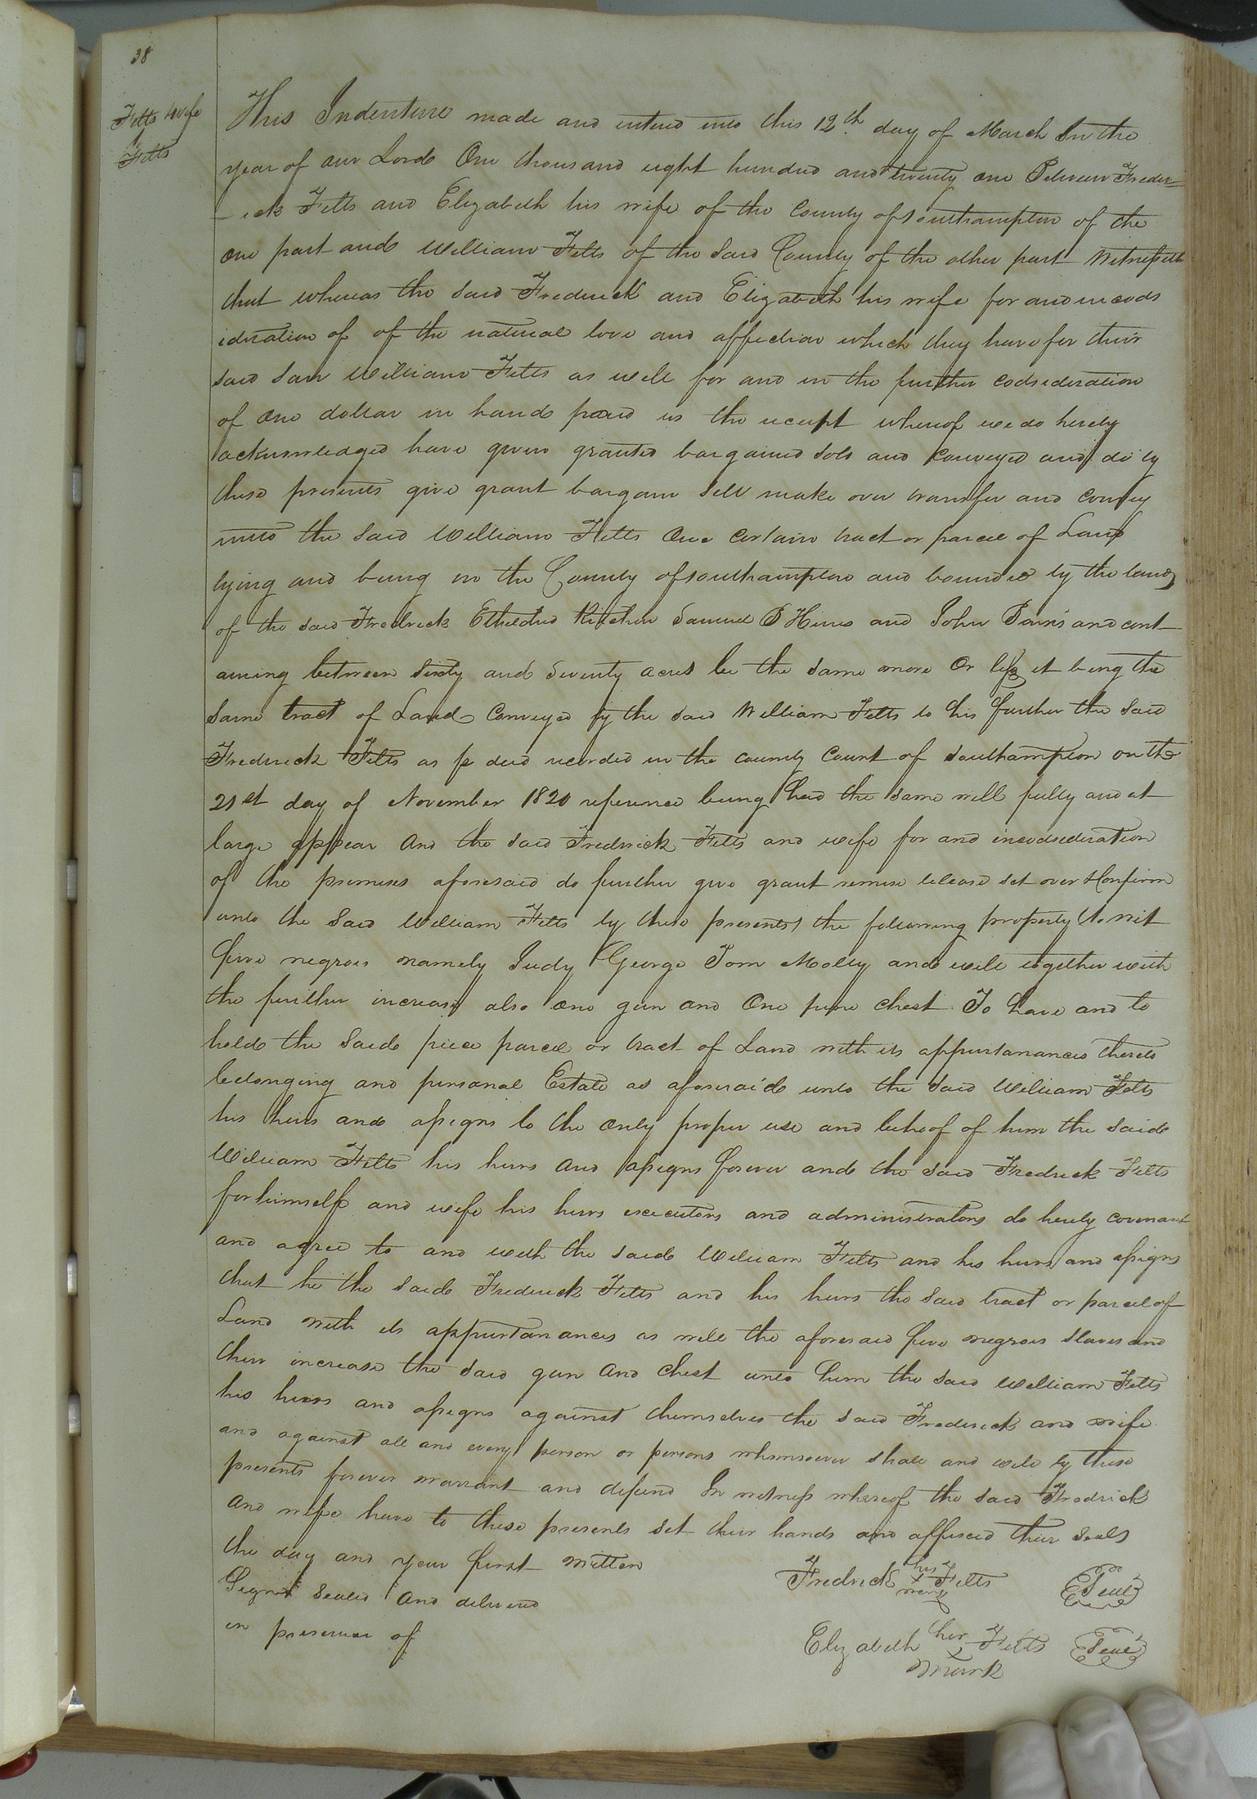 38
Felts & wife
Felts
This Indenture made and entered into this 12th day of March In the
year of our Lord One thousand eight hundred and twenty one Between Freder=
-ick Felts and Elizabeth his wife of the County of Southampton of the
one part and William Felts of the said County of the other part Witnesseth
that whereas the said Frederick and Elizabeth his wife for and in cods
ideration of of the natural love and affection which they have for their
said son William Felts as well for and in the further codsideration
of one dollar in hand paid us the receipt whereof we do hereby
acknowledged have given granted bargained sold and conveyed and do by
these presents give grant bargain sell make over transfer and convey
unto the said William Felts One certain tract or parcel of Land
lying and being in the County of Southampton and bounded by the lands
of the said Fredrick Etheldred Kitchen Samuel B Hines and John and cont
aining between sixty and seventy acres be the same more or less it being the
same tract of Land Conveyed by the said William Felts to his further the said
Frederick Felts as pr deed recorded in the county Court of Southampton on the
21st day of November 1820 reference being had the same will fully and at
large appear and the said Fredrick Felts and wife for and in codsideration
of the premises aforesaid do further give grant remise release set over & confirm
unto the said William Felts by these presents the following property to wit
five negroes namely Judy George Tom Molly and will together with
the further increase also one gun and One pine chest To have and to
hold the said piece parcel or tract of Land with its appurtanances thereto
belonging and personal Estate as aforesaid unto the said William Felts
his heirs and assigns to the only proper use and behoof of him the said
William Felts his heirs and assigns forever and the said Fredrick Felts
for himself and wife his heirs executors and administrators do hereby covenant
and agree to and with the said William Felts and his heirs and assigns
that he the said Frederick Felts and his heirs the said tract or parcel of
Land with its appurtanances as well the aforesaid five negroes slaves and
their increase the said gun and chest unto him the said William Felts
his heirs and assigns against themselves the said Frederick and wife
and against all and every person or persons whomsoever shall and will by these
presents forever warrant and defend In witness whereof the said Fredrick
and wife have to these presents set their hands and affixed their seals
the day and year first written
Signed sealed and delivered
in presence of
Fredrick his x mark Felts Seal
Elizabeth her x mark Felts Seal